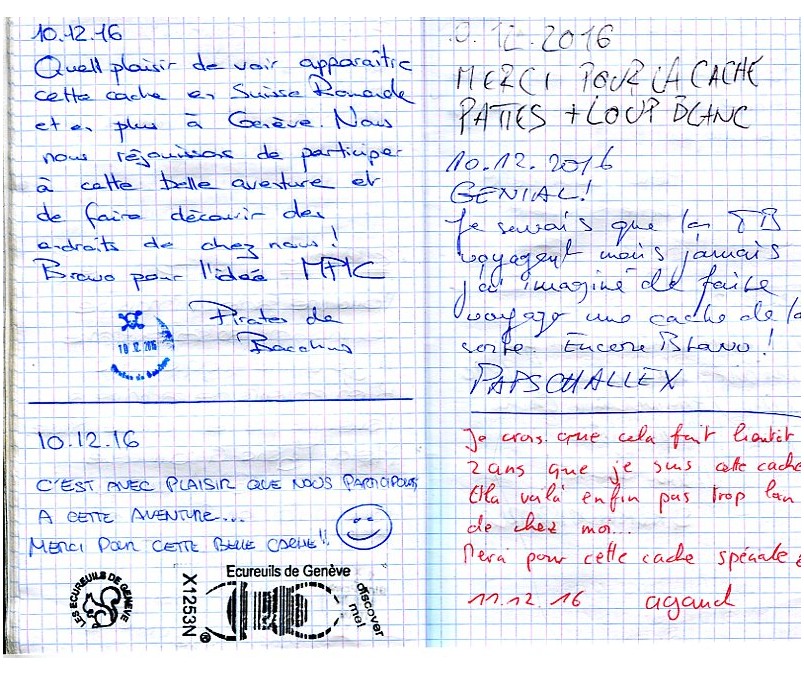 10.12.16
Quell plaisir de voir apparaître
cette cache en Suisse Romande
et en plus à Genève. Nous
nous réjouissons de participer
à cette belle aventure et
de faire découvrir des
endroits de chez nous!
Bravo pour l'idée MPLC
Pirates de
Bacchus
10.12.2016
10.12.16
C'EST AVEC PLAISIR QUE NOUS PARTICIPONS
A CETTE AVENTURE...
MERCI POUR CETTE BELLE CACHE!!
LES ECUREUILS DE GENÈVE
Ecureuils de Genève
X1253N®
discover
me!
0.12.2016
MERCI POUR LA CACHE
PATTES + LOUP BLANC
10.12.2016
GENIAL!
Je savais que les TB
voyagent mais jamais
j'ai imaginé de faire
voyager une cache de la
sorte. Encore Bravo!
PAPSCHALLEX
Je crois que cela fait bientôt
2 ans que je suis cette cache
Et la voilà enfin pas trop loin
de chez moi...
Merci pour cette cache spéciale
11.12.16 agaud